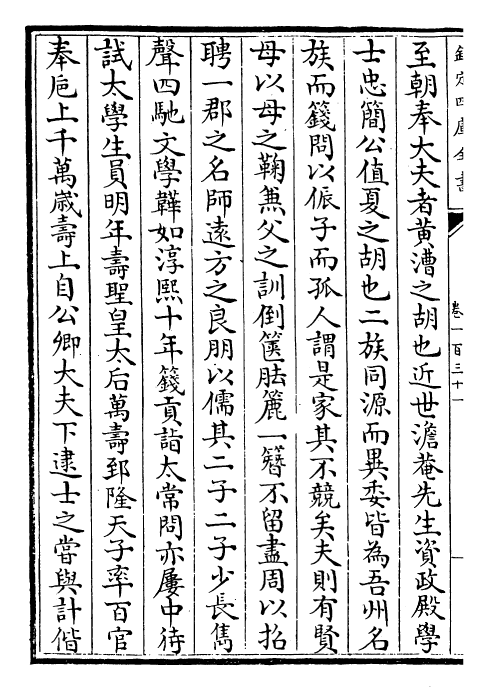 欽定四庫全書
卷一百三十一
至朝奉大夫者黄漕之胡也近世澹菴先生資政殿學
士忠簡公值夏之胡也二族同源而異委皆為吾州名
族而籛問以侲子而孤人謂是家其不競矣夫則有賢
母以母之鞠兼父之訓倒篋胠簏一簪不留盡周以招
聘一郡之名師逺方之良朋以儒其二子二子少長雋
聲四馳文學韡如淳熙十年籛貢詣太常問亦屢中待
試太學生員明年壽聖皇太后萬壽郅隆天子率百官
奉巵上千萬嵗壽上自公卿大夫下逮士之嘗與計偕